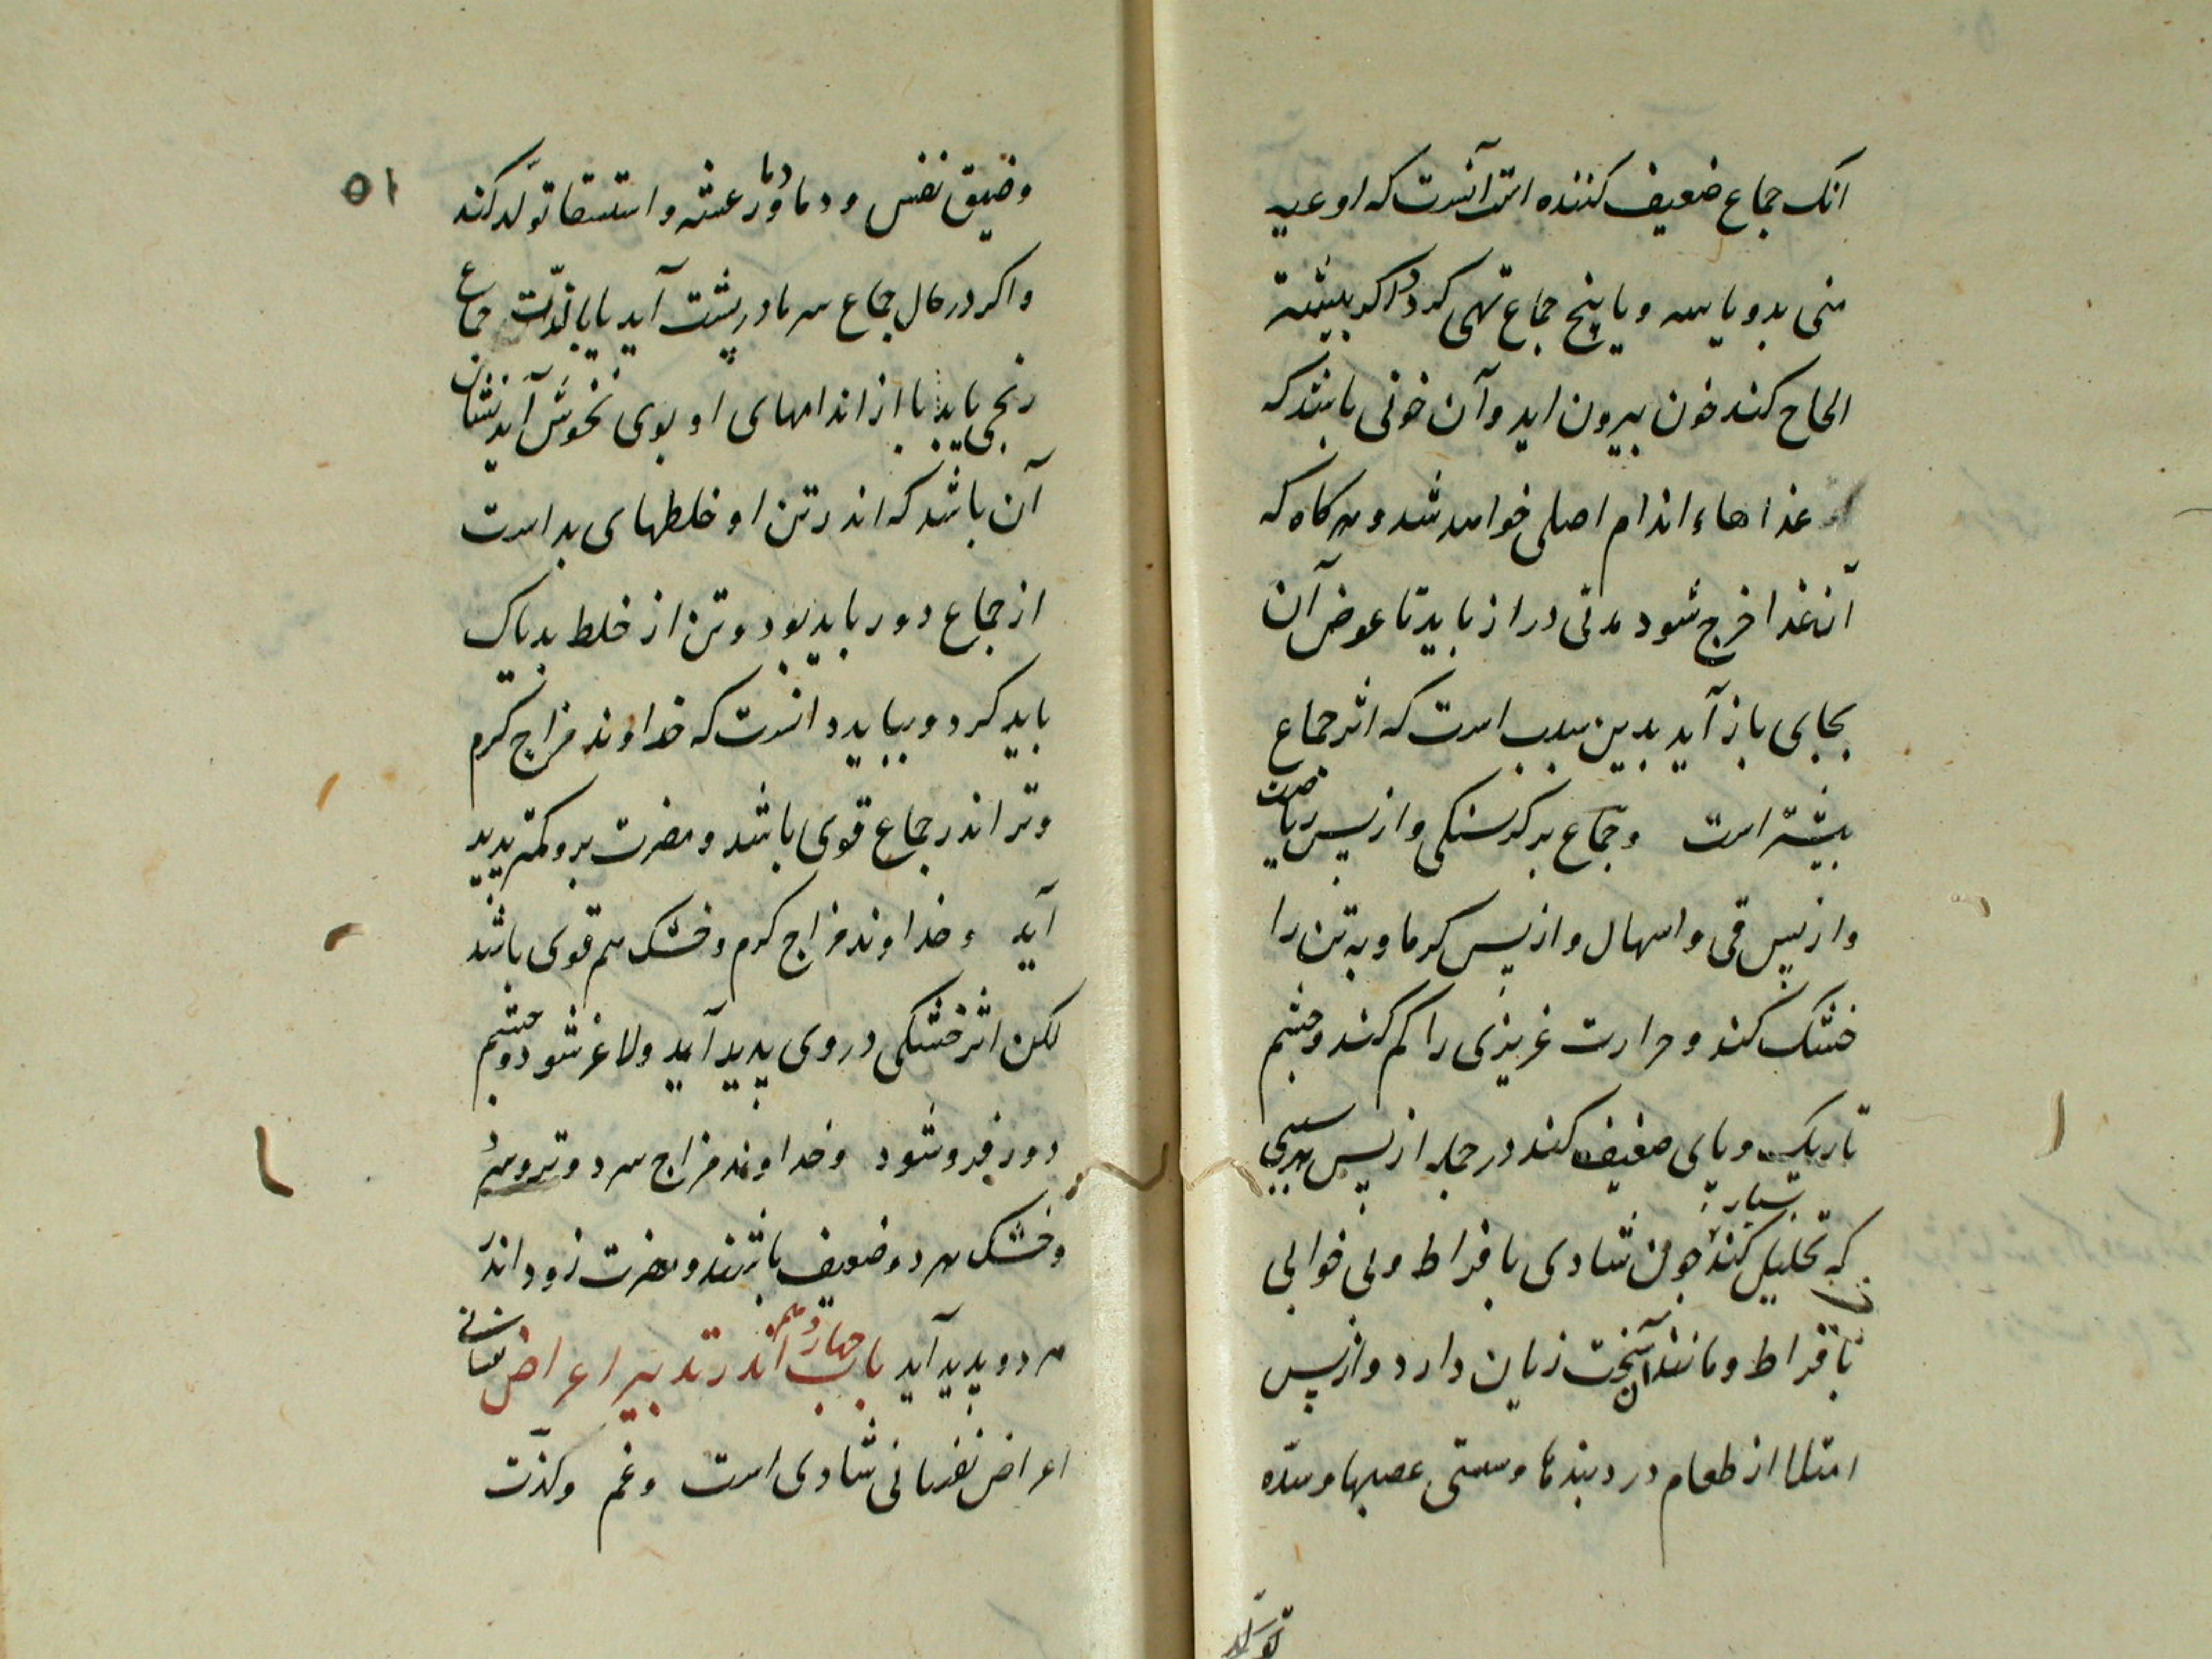 انک جماع ضعیف کننده است آنست که اوعیه
منی بدو یا سه و یا پنج جماع تهی کردد اکر بیشتر
الحاح کند خون بیرون اید و آن خونی باشد که
غذاهاء اندام اصلی خواهد شد و هرکاه که
آن غذا خرج شود مدتی دراز باید تا عوض آن
بجای باز آید بدین سبب است که اثر جماع
بیشتر است و جماع بر کرسنکی و از پس ریاضت
و از پس قی و اسهال و از پس کرماوبه تن را
خشک کند و حرارت غریزی را کم کند و چشم
تاریک و پای ضعیف کند در جمله از پس هر سببی
که تحلیل کند بسیار چون شادی بافراط و بی خوابی
بافراط و مانند آن سخت زیان دارد و از پس
امتلا از طعام درد بندها و سستی عصبها و سدّه
تولّد
۵۱
و ضیق نفس و دما و رعشه و استسقا تولّد کند
و اکر در حال جماع سرما در پشت آید یا با لذّت جماع
رنجی یابد یا از اندامهای او بوی نخوش آید نشان
آن باشد که اندر تن او خلطهای بد است
از جماع دور باید بود و تن از خلط بد پاک
باید کرد و بباید دانست که خداوند مزاج کرم
و تر اندر جماع قوی باشد و مضرت برو کمتر پدید
آید و خداوند مزاج کرم و خشک هم قوی باشد
لکن اثر خشکی در وی پدید آید و لاغر شود و چشم
دور فرو شود و خداوند مزاج سرد و تر و سرد
و خشک هر دو ضعیف باشند و مضرت زود اندر
هر دو پدید آید باب چهاردهم اندر تدبیر اعراض نفسانی
اعراض نفسانی شادی است و غم و لذّت